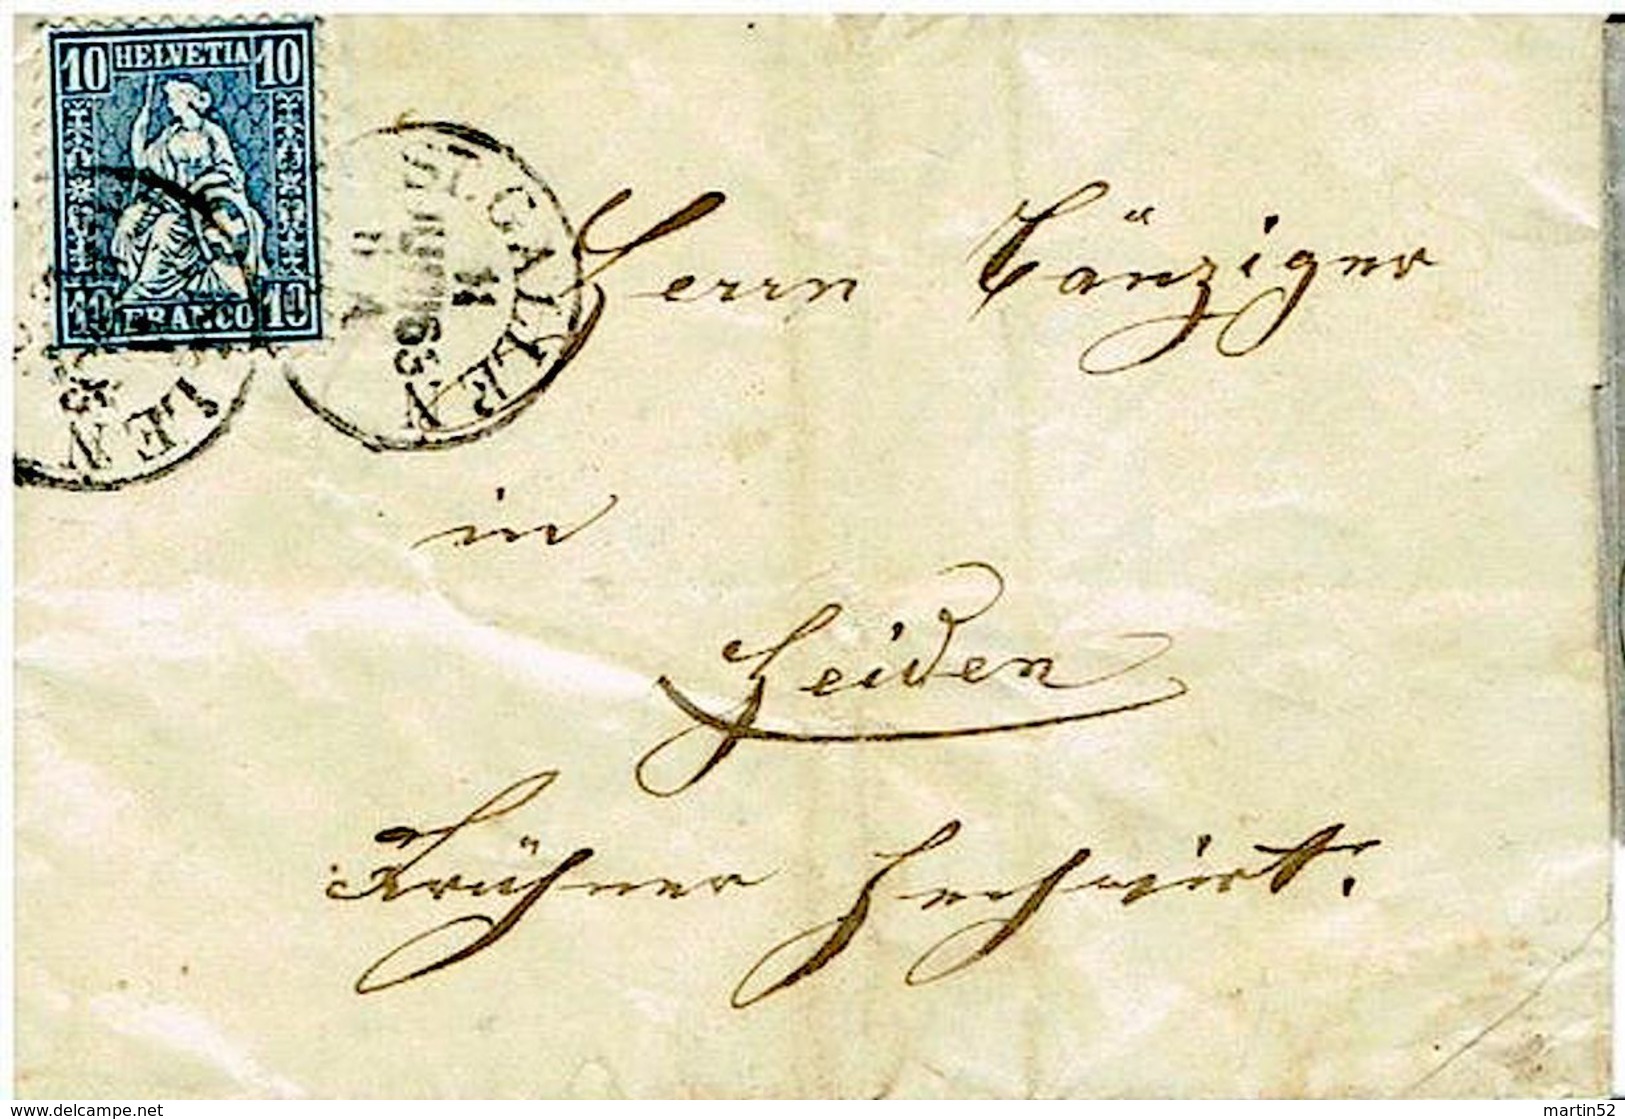 10 HELVETIA 10
10 FRANCO 10
ST. GALLEN
11
65
LEN
Herrn Bänziger
in
Heiden
Krühner
www.delcampe.net
martin52